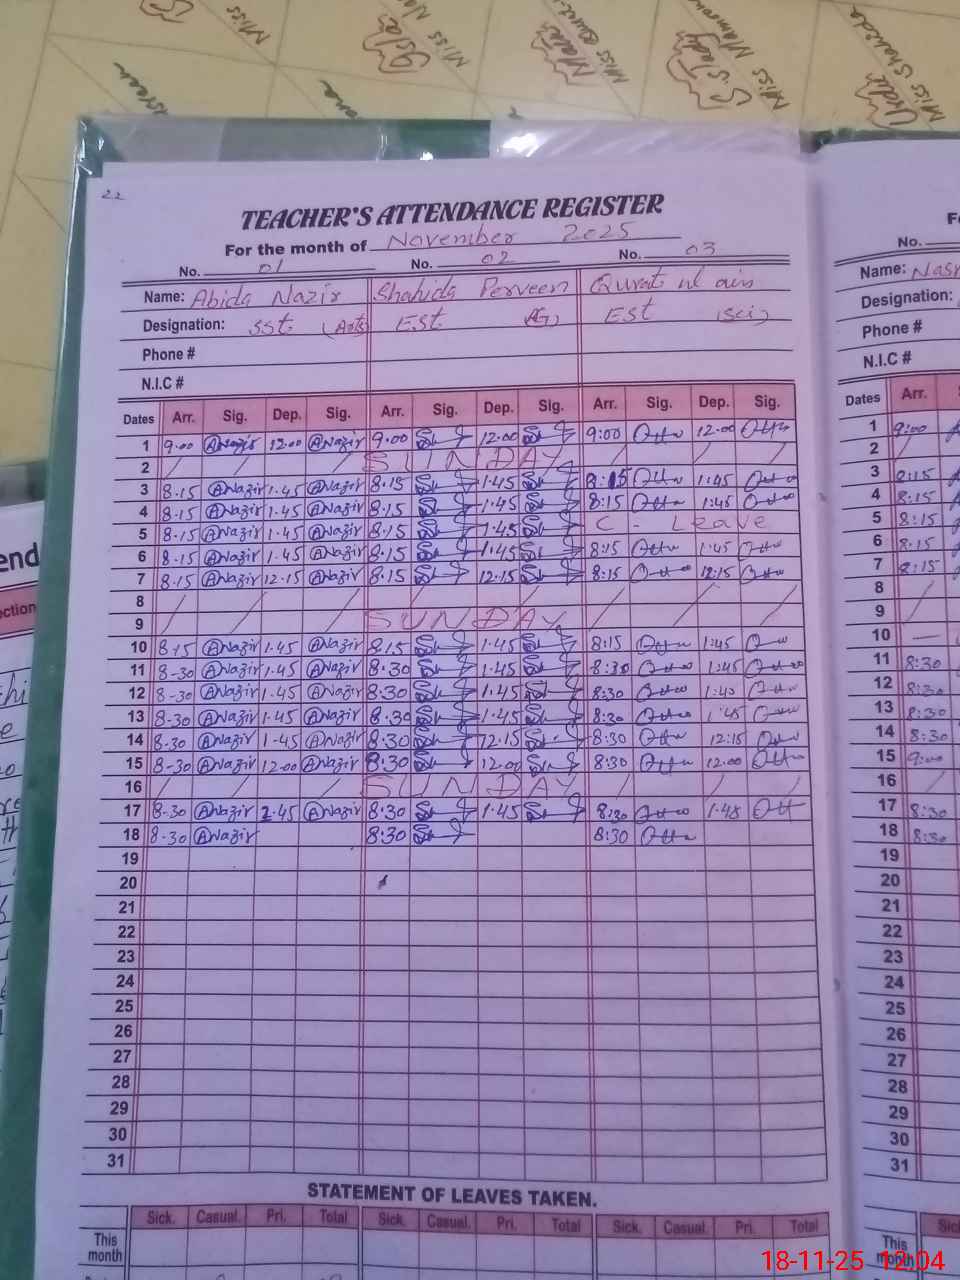 Miss
Isl
Miss
Math
Miss Qurat
S.Study
Miss
Urdu
Miss Shaheda
22
TEACHER'S ATTENDANCE REGISTER
For the month of November 2025
No. 01 No. 02 No. 03
Name: Abida Nazir Shahida Perveen Qurat ul ain
Designation: SST (Arts) EST (AG) EST (Sci)
Phone #
N.I.C #
Dates Arr. Sig. Dep. Sig. Arr. Sig. Dep. Sig. Arr. Sig. Dep. Sig.
1 9.00 ANazir 12.00 ANazir 9.00 12.00 9:00 12.00
2 / / / SUNDAY / / /
3 8.15 ANazir 1.45 ANazir 8.15 1.45 8:15 1:45
4 8.15 ANazir 1.45 ANazir 8.15 1.45 8:15 1:45
5 8.15 ANazir 1.45 ANazir 8.15 1.45 C - Leave
6 8.15 ANazir 1.45 ANazir 8.15 1.45 8:15 1:45
7 8.15 ANazir 12.15 ANazir 8.15 12.15 8:15 12:15
8
9 / / / / SUNDAY / / / /
10 8.15 ANazir 1.45 ANazir 8.15 1.45 8:15 1:45
11 8-30 ANazir 1.45 ANazir 8.30 1.45 8:30 1:45
12 8-30 ANazir 1.45 ANazir 8.30 1.45 8:30 1:45
13 8-30 ANazir 1.45 ANazir 8.30 1.45 8:30 1:45
14 8-30 ANazir 1-45 ANazir 8.30 12.15 8:30 12:15
15 8-30 ANazir 12.00 ANazir 8.30 12.00 8:30 12.00
16 / / / / SUNDAY / / / /
17 8-30 ANazir 2.45 ANazir 8:30 1.45 8:30 1:45
18 8-30 ANazir 8:30 8:30
19
20
21
22
23
24
25
26
27
28
29
30
31
STATEMENT OF LEAVES TAKEN.
Sick. Casual. Pri. Total Sick. Casual. Pri. Total Sick. Casual. Pri. Total
This month
No.
Name: Nasr
Designation:
Phone #
N.I.C #
Dates Arr.
1 9:00
2
3 8:15
4 8.15
5 8:15
6 8.15
7 8:15
8
9
10 —
11 8:30
12 8:30
13 8:30
14 8:30
15 9:00
16
17 8:30
18 8:30
19
20
21
22
23
24
25
26
27
28
29
30
31
This month
18-11-25 12:04